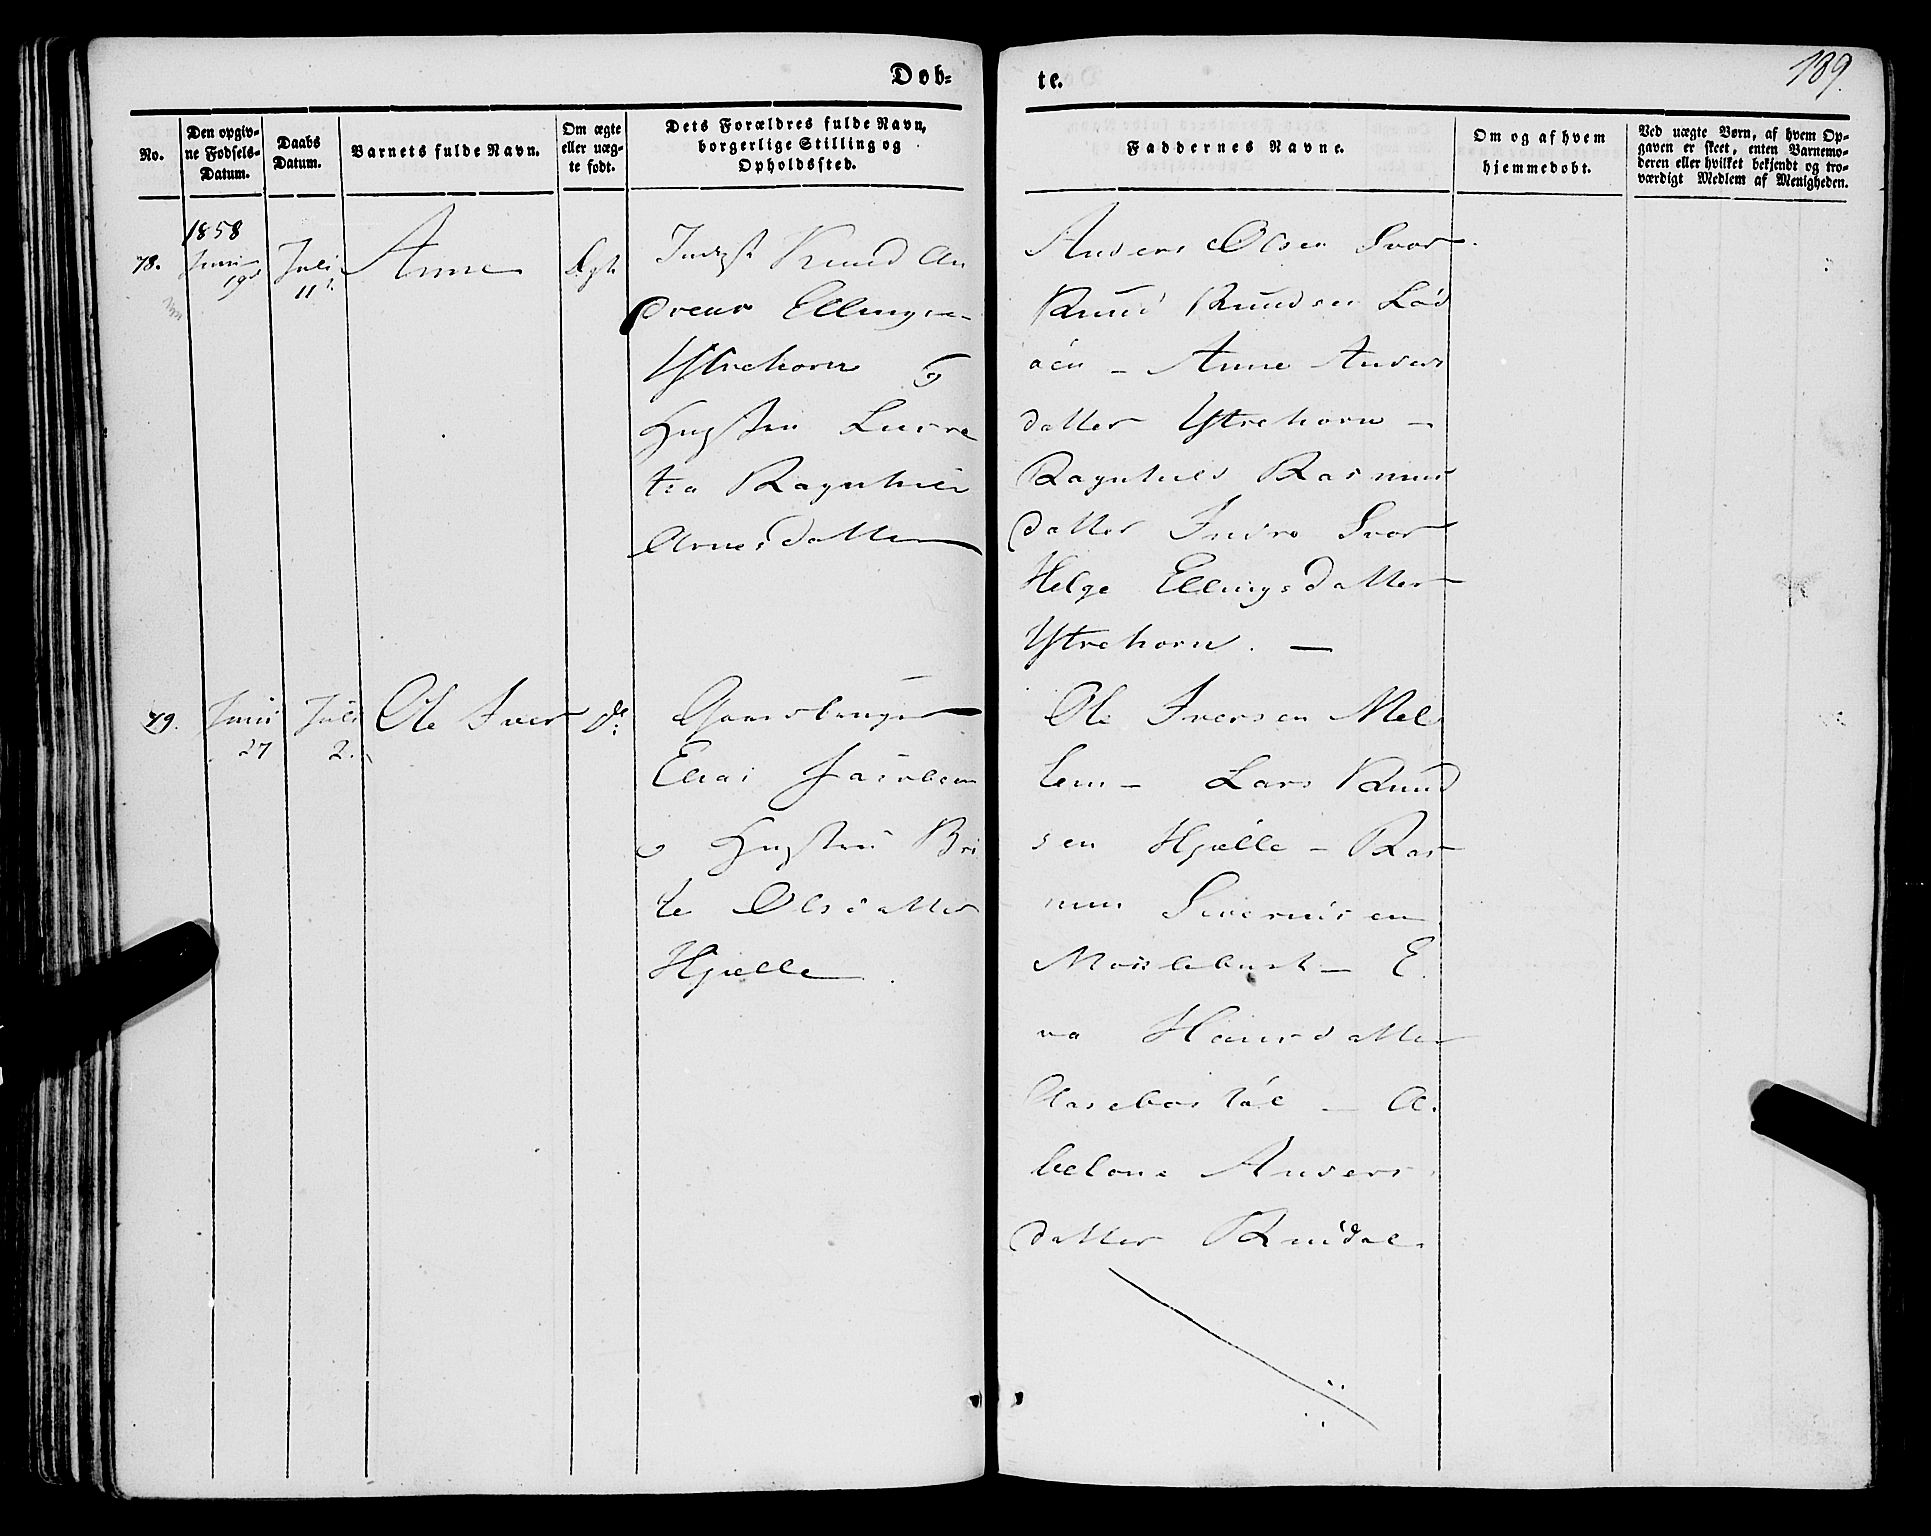 Døb-
te.
189.
No.
Den opgiv-
ne Fødsels-
Datum.
Daabs
Datum.
Barnets fulde Navn.
Om ægte
eller uæg-
te født.
Dets Forældres fulde Navn,
borgerlige Stilling og
Opholdssted.
Faddernes Navne.
Om og af hvem
hjemmedøbt.
Ved uægte Børn, af hvem Op-
gaven er skeet, enten Barnemo-
deren eller hvilket bekjendt og tro-
værdigt Medlem af Menigheden.
1858
78.
Juni
19
Juli
11
Anne
Ægte
Knud An
dreas Ellingsen
Ytrehorn og
Hustru
Ragnhild
Arnesdatter
Anders Olsen Svor
Knud Knudsen Lød
øen - Anne Anders
datter Ytrehorn -
Ragnhild Rasmus
datter Indre Svor
Helge Ellingsdatter
Ytrehorn. -
79.
Juni
27
Juli
2.
Ole Iver
do
Gaardbruger
Elias Jacobsen
o Hustru Bri
te Olsdatter
Hjelle.
Ole Iversen Mel
lem - Lars Knud
sen Hjelle - Ras
mus
- E.
va Hansdatter
- A.
belone Anders
datter